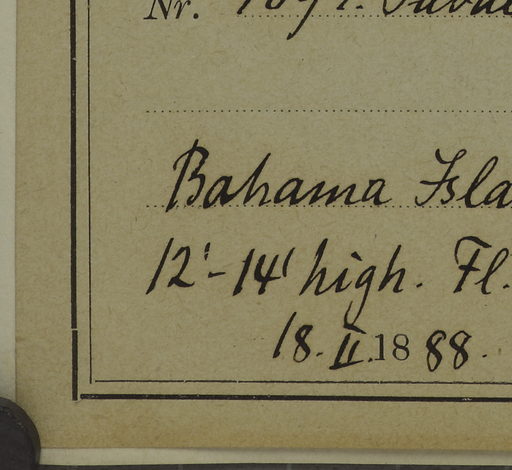 Nr.
Bahama Isla
12'-14' high. Fl.
18. II. 1888.